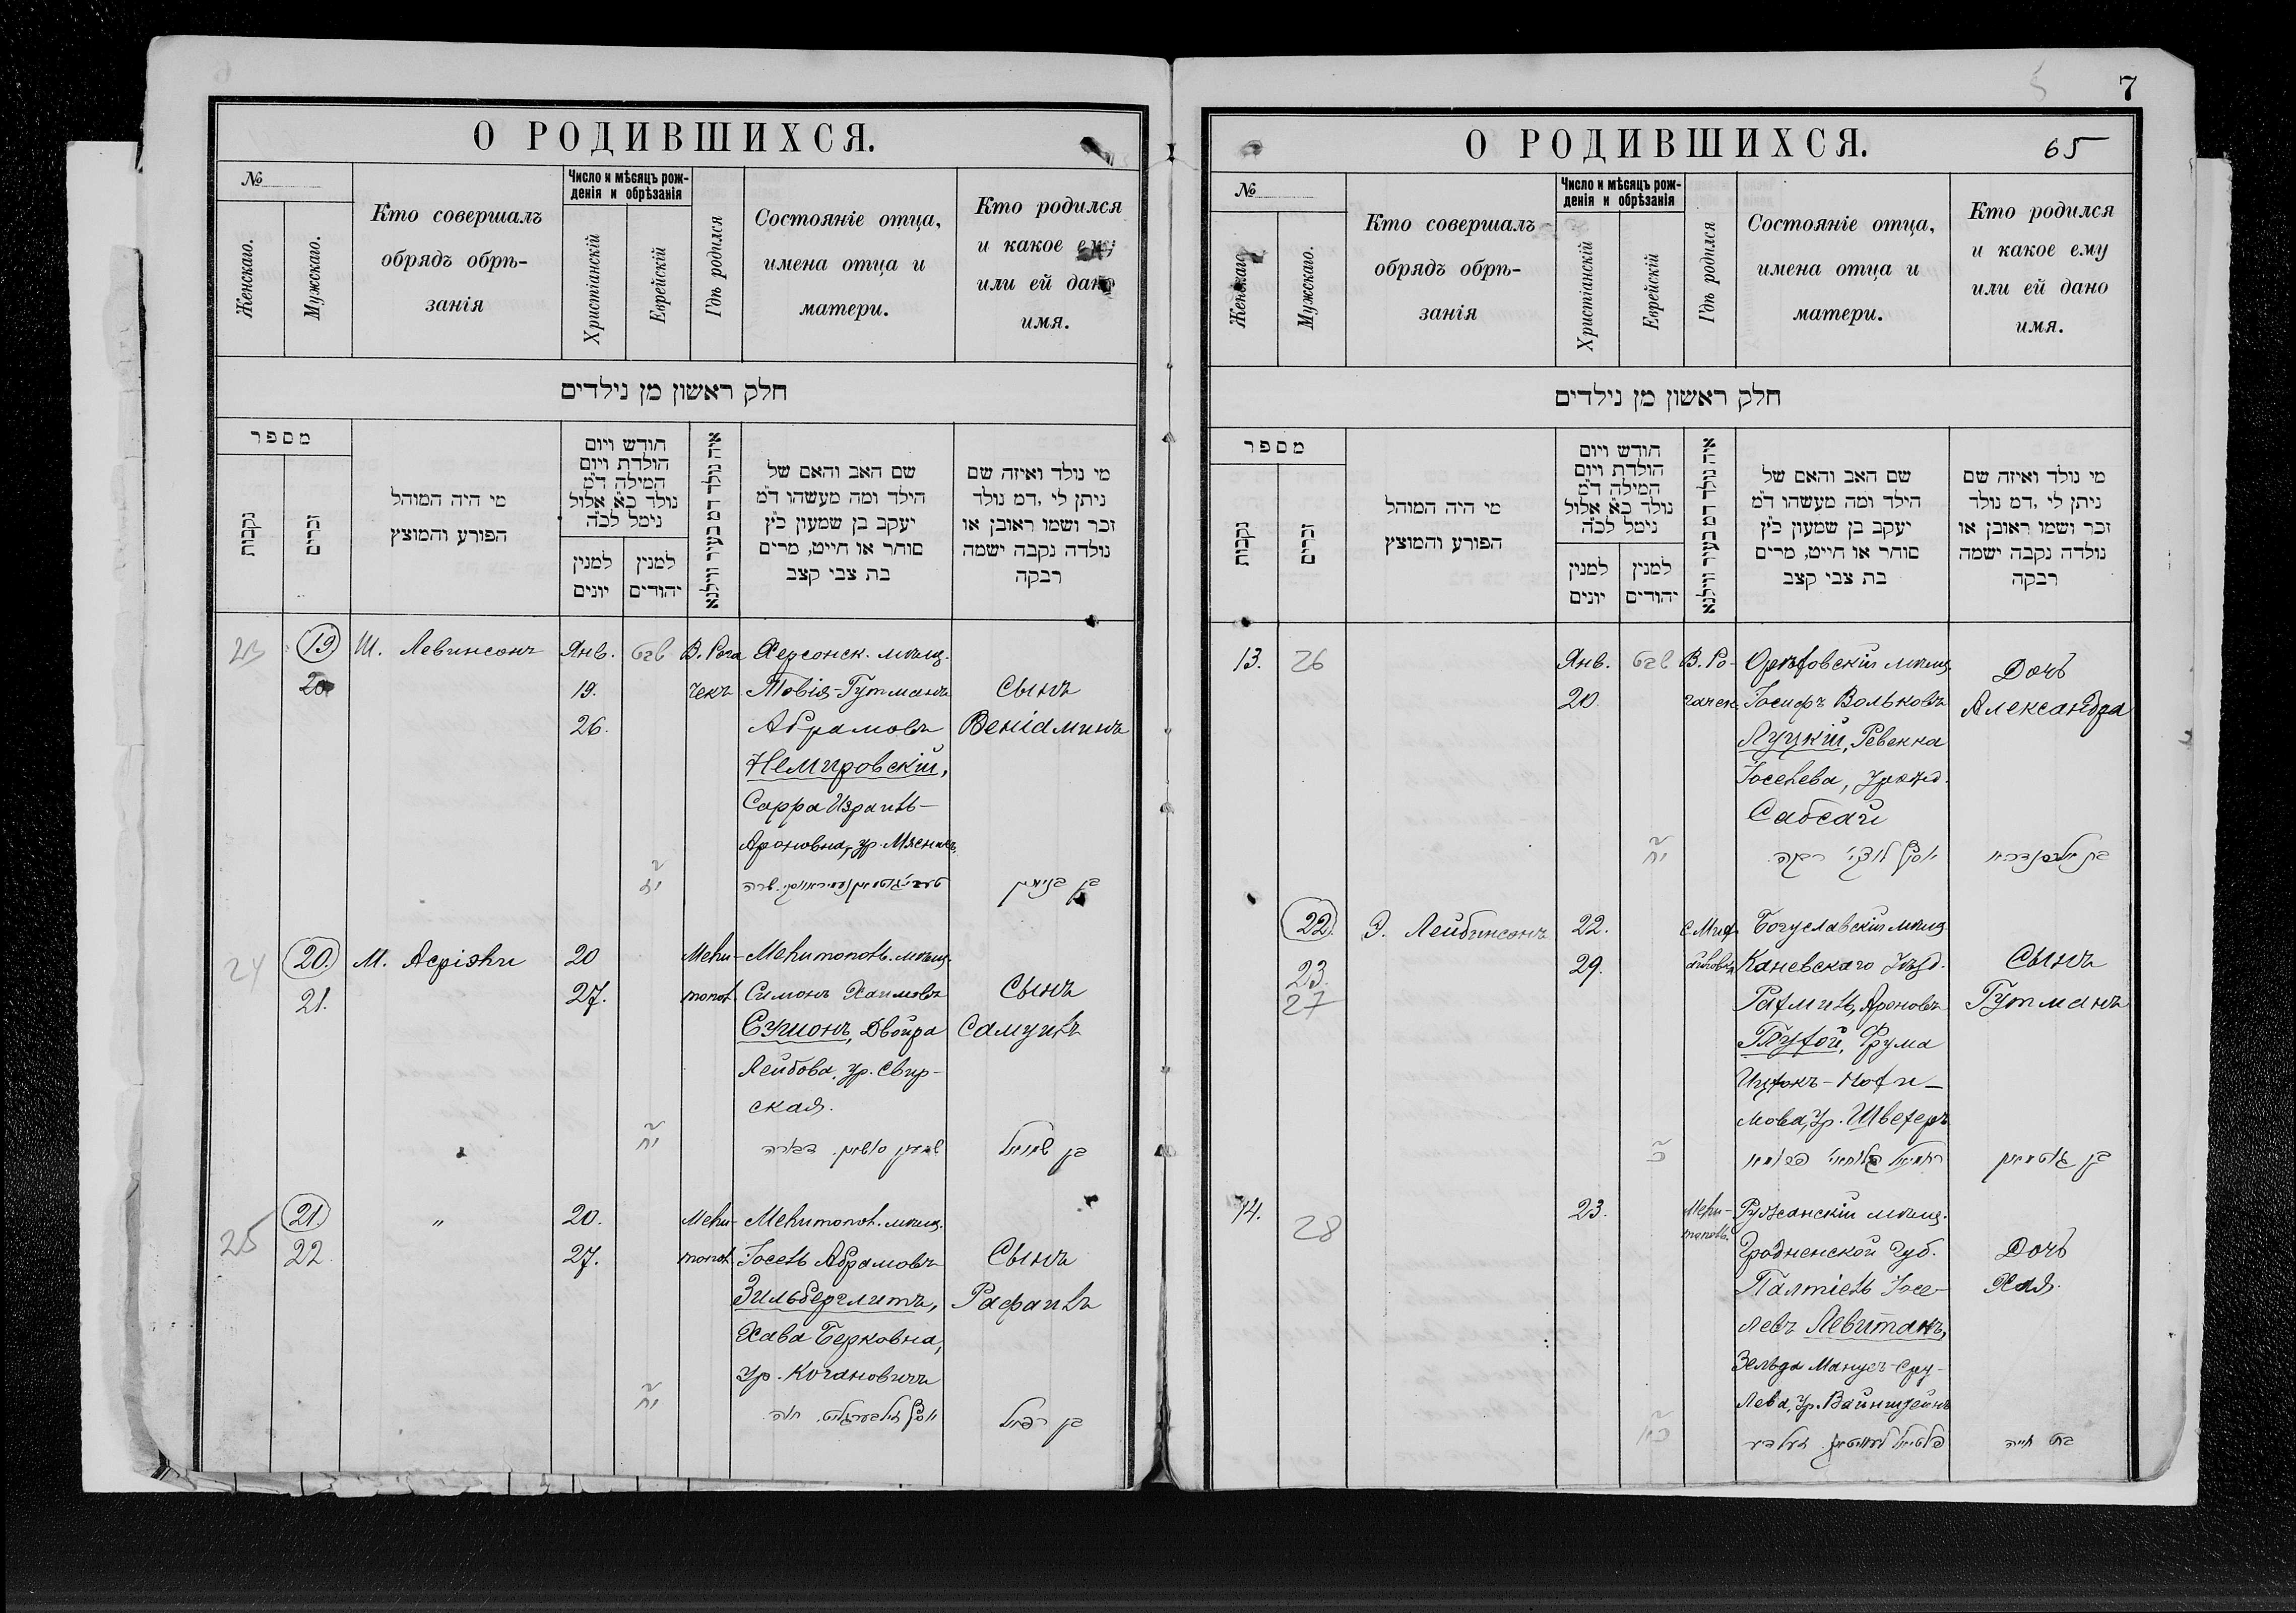 О РОДИВШИХСЯ.
№
Женскаго.
Мужскаго.
Кто совершалъ
обрядъ обрѣ-
занія
Число и мѣсяцъ рож-
денія и обрѣзанія
Христіанскій
Еврейскій
Гдѣ родился
Состояніе отца,
имена отца и
матери.
Кто родился
и какое ему
или ей дано
имя.
חלק ראשון מן נילדים
מספר
נקבות
זכרים
מי היה המוהל
הפורע והמוצץ
חודש ויום
הולדת ויום
המילה ד״מ
נולד כא אלול
נימל לכ״ה
למנין
יונים
למנין
יהודים
איה נולד דמ בעיר ווילנא
שם האב והאם של
הילד ומה מעשהו ד״מ
יעקב בן שמעון כ״ץ
סוחר או חייט, מרים
בת צבי קצב
מי נולד ואיזה שם
ניתן לי ,דמ נולד
זכר ושמו ראובן או
נולדה נקבה ישמה
רבקה
23
19
20
Ш. Левинсонъ
Янв.
19.
26.
שבט
В. Рога
чекъ
Херсонск. мѣщ.
Товія-Гутманъ
Абрамовъ
Немировскій,
Сарра Израиль-
Ароновна, ур. Мясникъ
Сынъ
Веніаминъ
בן בנימין
24
20.
21.
М. Асріэли
20
27.
Мели-
топол.
Мелитопол. мѣщ.
Симонъ Хаимовъ
Сушонъ, Двойра
Лейбова, ур. Свир-
ская.
Сынъ
Самуилъ
בן שמואל
25
21.
22.
"
20.
27.
Мели-
топол.
Мелитопол. мѣщ.
Іосель Абрамовъ
Зильберглитъ,
Хава Берковна,
ур. Когановичъ
Сынъ
Рафаилъ
יוסף זילבערגליט. חוה
בן רפאל
О РОДИВШИХСЯ.
7
65
№
Женскаго.
Мужскаго.
Кто совершалъ
обрядъ обрѣ-
занія
Число и мѣсяцъ рож-
денія и обрѣзанія
Христіанскій
Еврейскій
Гдѣ родился
Состояніе отца,
имена отца и
матери.
Кто родился
и какое ему
или ей дано
имя.
חלק ראשון מן נילדים
מספר
נקבות
זכרים
מי היה המוהל
הפורע והמוצץ
חודש ויום
הולדת ויום
המילה ד״מ
נולד כא אלול
נימל לכ״ה
למנין
יונים
למנין
יהודים
איה נולד דמ בעיר ווילנא
שם האב והאם של
הילד ומה מעשהו ד״מ
יעקב בן שמעון כ״ץ
סוחר או חייט, מרים
בת צבי קצב
מי נולד ואיזה שם
ניתן לי ,דמ נולד
זכר ושמו ראובן או
נולדה נקבה ישמה
רבקה
13.
26
Янв.
20.
שבט
В. Ро-
гачек.
Орѣховскій мѣщ.
Іосифъ Вольковъ
Луцкій, Ревекка
Іоселева, урожд.
Сабсай
Дочь
Александра
יוסף לוצקי רבקה.
22.
23.
27
Э. Лейбинсонъ
22.
29.
Богуславскій мѣщ.
Каневскаго Уѣзд.
Рахмиль Ароновъ
Глухой, Фрума
Ицхокъ-Нохи-
мова, ур. Швехеръ
Сынъ
Гутманъ
בן גוטמאן
14.
28
23.
Мели-
тополь.
Ружанскій мѣщ.
Гродненской губ.
Палтіель Іосе-
левъ Левитанъ,
Зельда Манусъ-Сру-
лева, ур. Вайнштейнъ
Дочь
Хая.
פלטיאל לעוויטאן. זעלדע
בת חייה